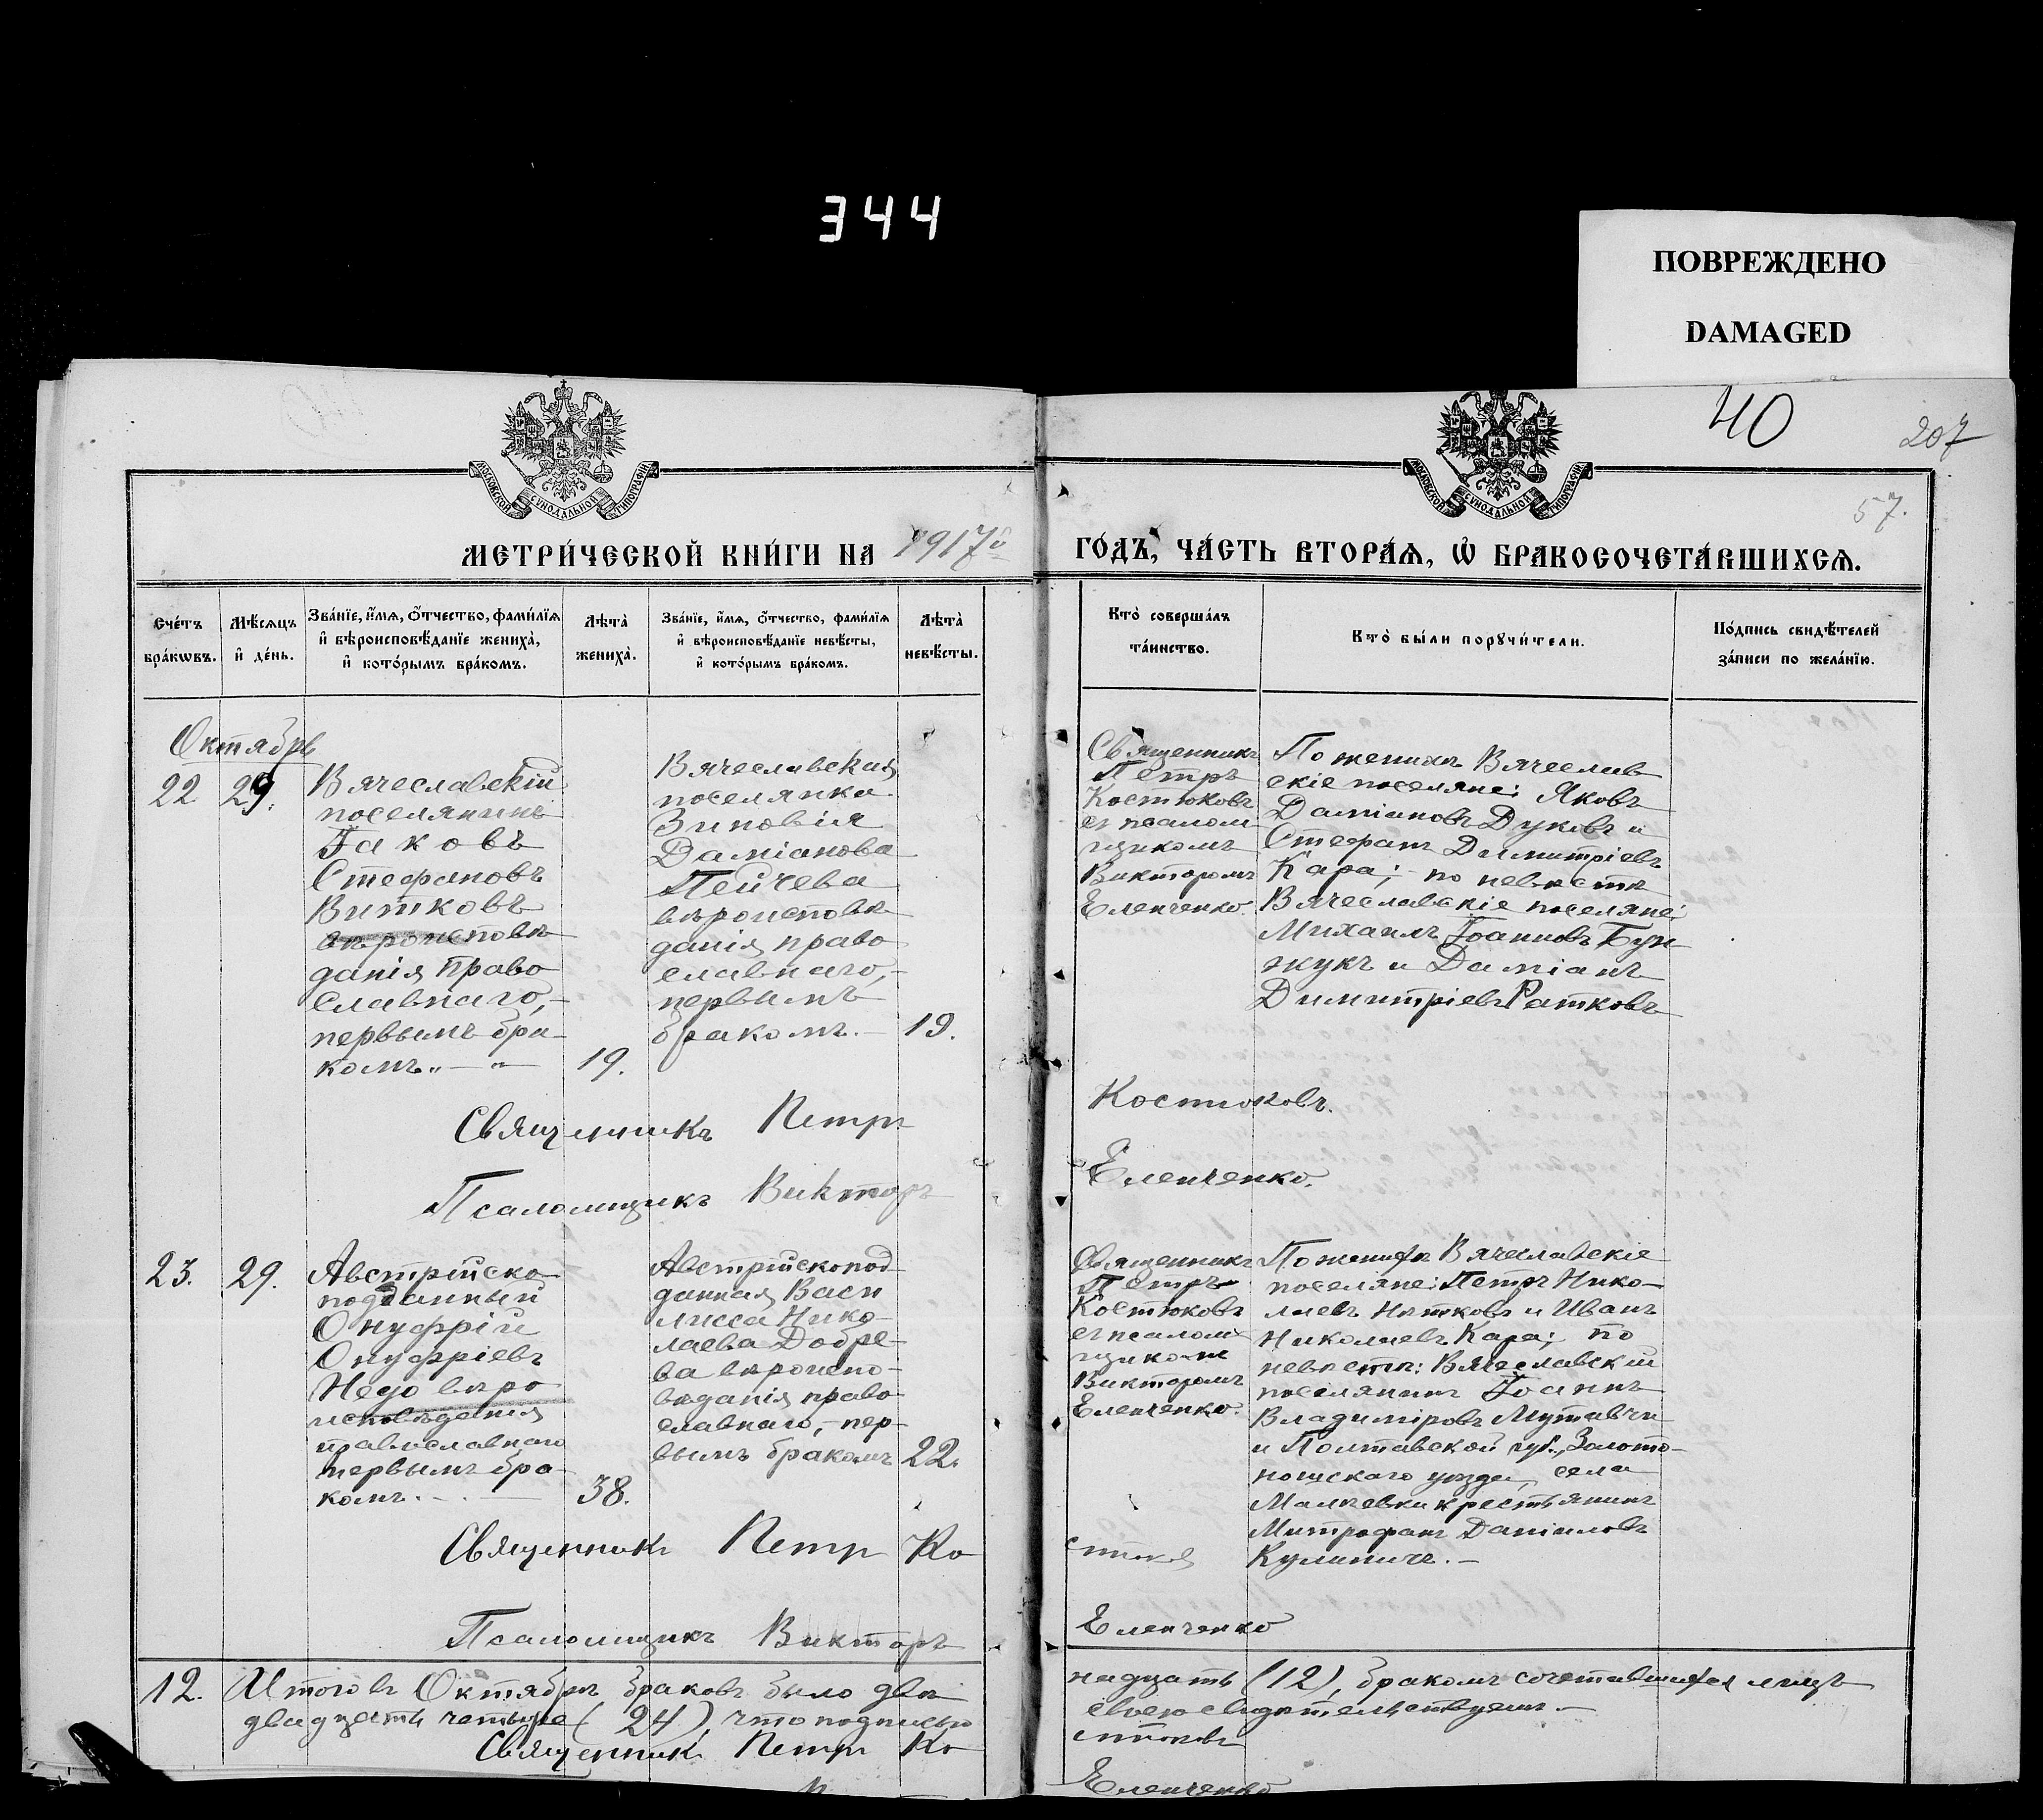 344
ПОВРЕЖДЕНО
DAMAGED
40
207
57.
МОСКОВСКОЙ СѴНОДАЛЬНОЙ ТИПОГРАФІИ
МОСКОВСКОЙ СѴНОДАЛЬНОЙ ТИПОГРАФІИ
МЕТРИ́ЧЕСКОЙ КНИ́ГИ НА 1917й ГО́ДЪ, ЧА́СТЬ ВТОРА́Ѧ, Ѡ҆ БРАКОСОЧЕТА́ВШИХСѦ.
Сче́тъ бра́кѡвъ.
Мѣ́сяцъ и҆ де́нь.
Зва́нїе, и҆́мѧ, ѻ҆́тчество, фами́лїѧ и҆ вѣроисповѣ́данїе жениха̀, и҆ кото́рымъ бра́комъ.
Лѣ́та̀ жениха̀.
Зва́нїе, и҆́мѧ, ѻ҆́тчество, фами́лїѧ и҆ вѣроисповѣ́данїе невѣ́сты, и҆ кото́рымъ бра́комъ.
Лѣ́та̀ невѣ́сты.
Кто̀ соверша́лъ та́инство.
Кто̀ бы́ли порꙋчи́тели.
По́дпись свидѣ́телей за́писи по жела́нїю.
Октябрь
22. 29.
Вячеславскій
поселянинъ
Іаковъ
Стефановъ
Витковъ
вѣроисповѣ
данія право
славнаго,-
первымъ бра-
комъ. „ — „
19.
Вячеславская
поселянка
Зиновія
Даміанова
Пейчева
вѣроисповѣ
данія право
славнаго,-
первымъ
бракомъ. —
19.
Священникъ
Петръ
Костюковъ
съ псалом
щикомъ
Викторомъ
Еленченко.
По женихѣ Вячеслав
скіе поселяне: Яковъ
Даміановъ Дуковъ и
Стефанъ Димитріевъ
Кара; - по невѣстѣ
Вячеславскіе поселяне:
Михаилъ Іоанновъ Бун
жукъ и Даміанъ
Димитріевъ Ратковъ
Священникъ Петръ Костюковъ.
Псаломщикъ Викторъ Еленченко.
23. 29.
Австрійско
подданный
Онуфрій
Онуфріевъ
вѣро
исповѣданія
православнаго
первымъ бра
комъ. - . —
38.
Австрійскопод
данная Васи
лисса Нико-
лаева Добре-
ва вѣроиспо-
вѣданія право
славнаго, - пер-
вымъ бракомъ
22.
Священникъ
Петръ
Костюковъ
съ псалом
щикомъ
Викторомъ
Еленченко.
По женихѣ Вячеславскіе
поселяне: Петръ Нико-
лаевъ и Иванъ
Николаевъ Кара; по
невѣстѣ: Вячеславскій
поселянинъ Іоаннъ
Владиміровъ Мутавчи
и Полтавской губ., Золото-
ношскаго уѣзда, села
крестьянинъ
Митрофанъ Даніиловъ
Кулиничъ. —
Священникъ Петръ Ко
Псаломщикъ Викторъ Еленченко
12. Итого въ Октябрѣ браковъ было двѣ
надцать (12), бракомъ сочетавшихся лицъ
двадцать четыре (24), что подписью
своею свидѣтельствуемъ. —
Священникъ Петръ Ко
стюковъ
Еленченко